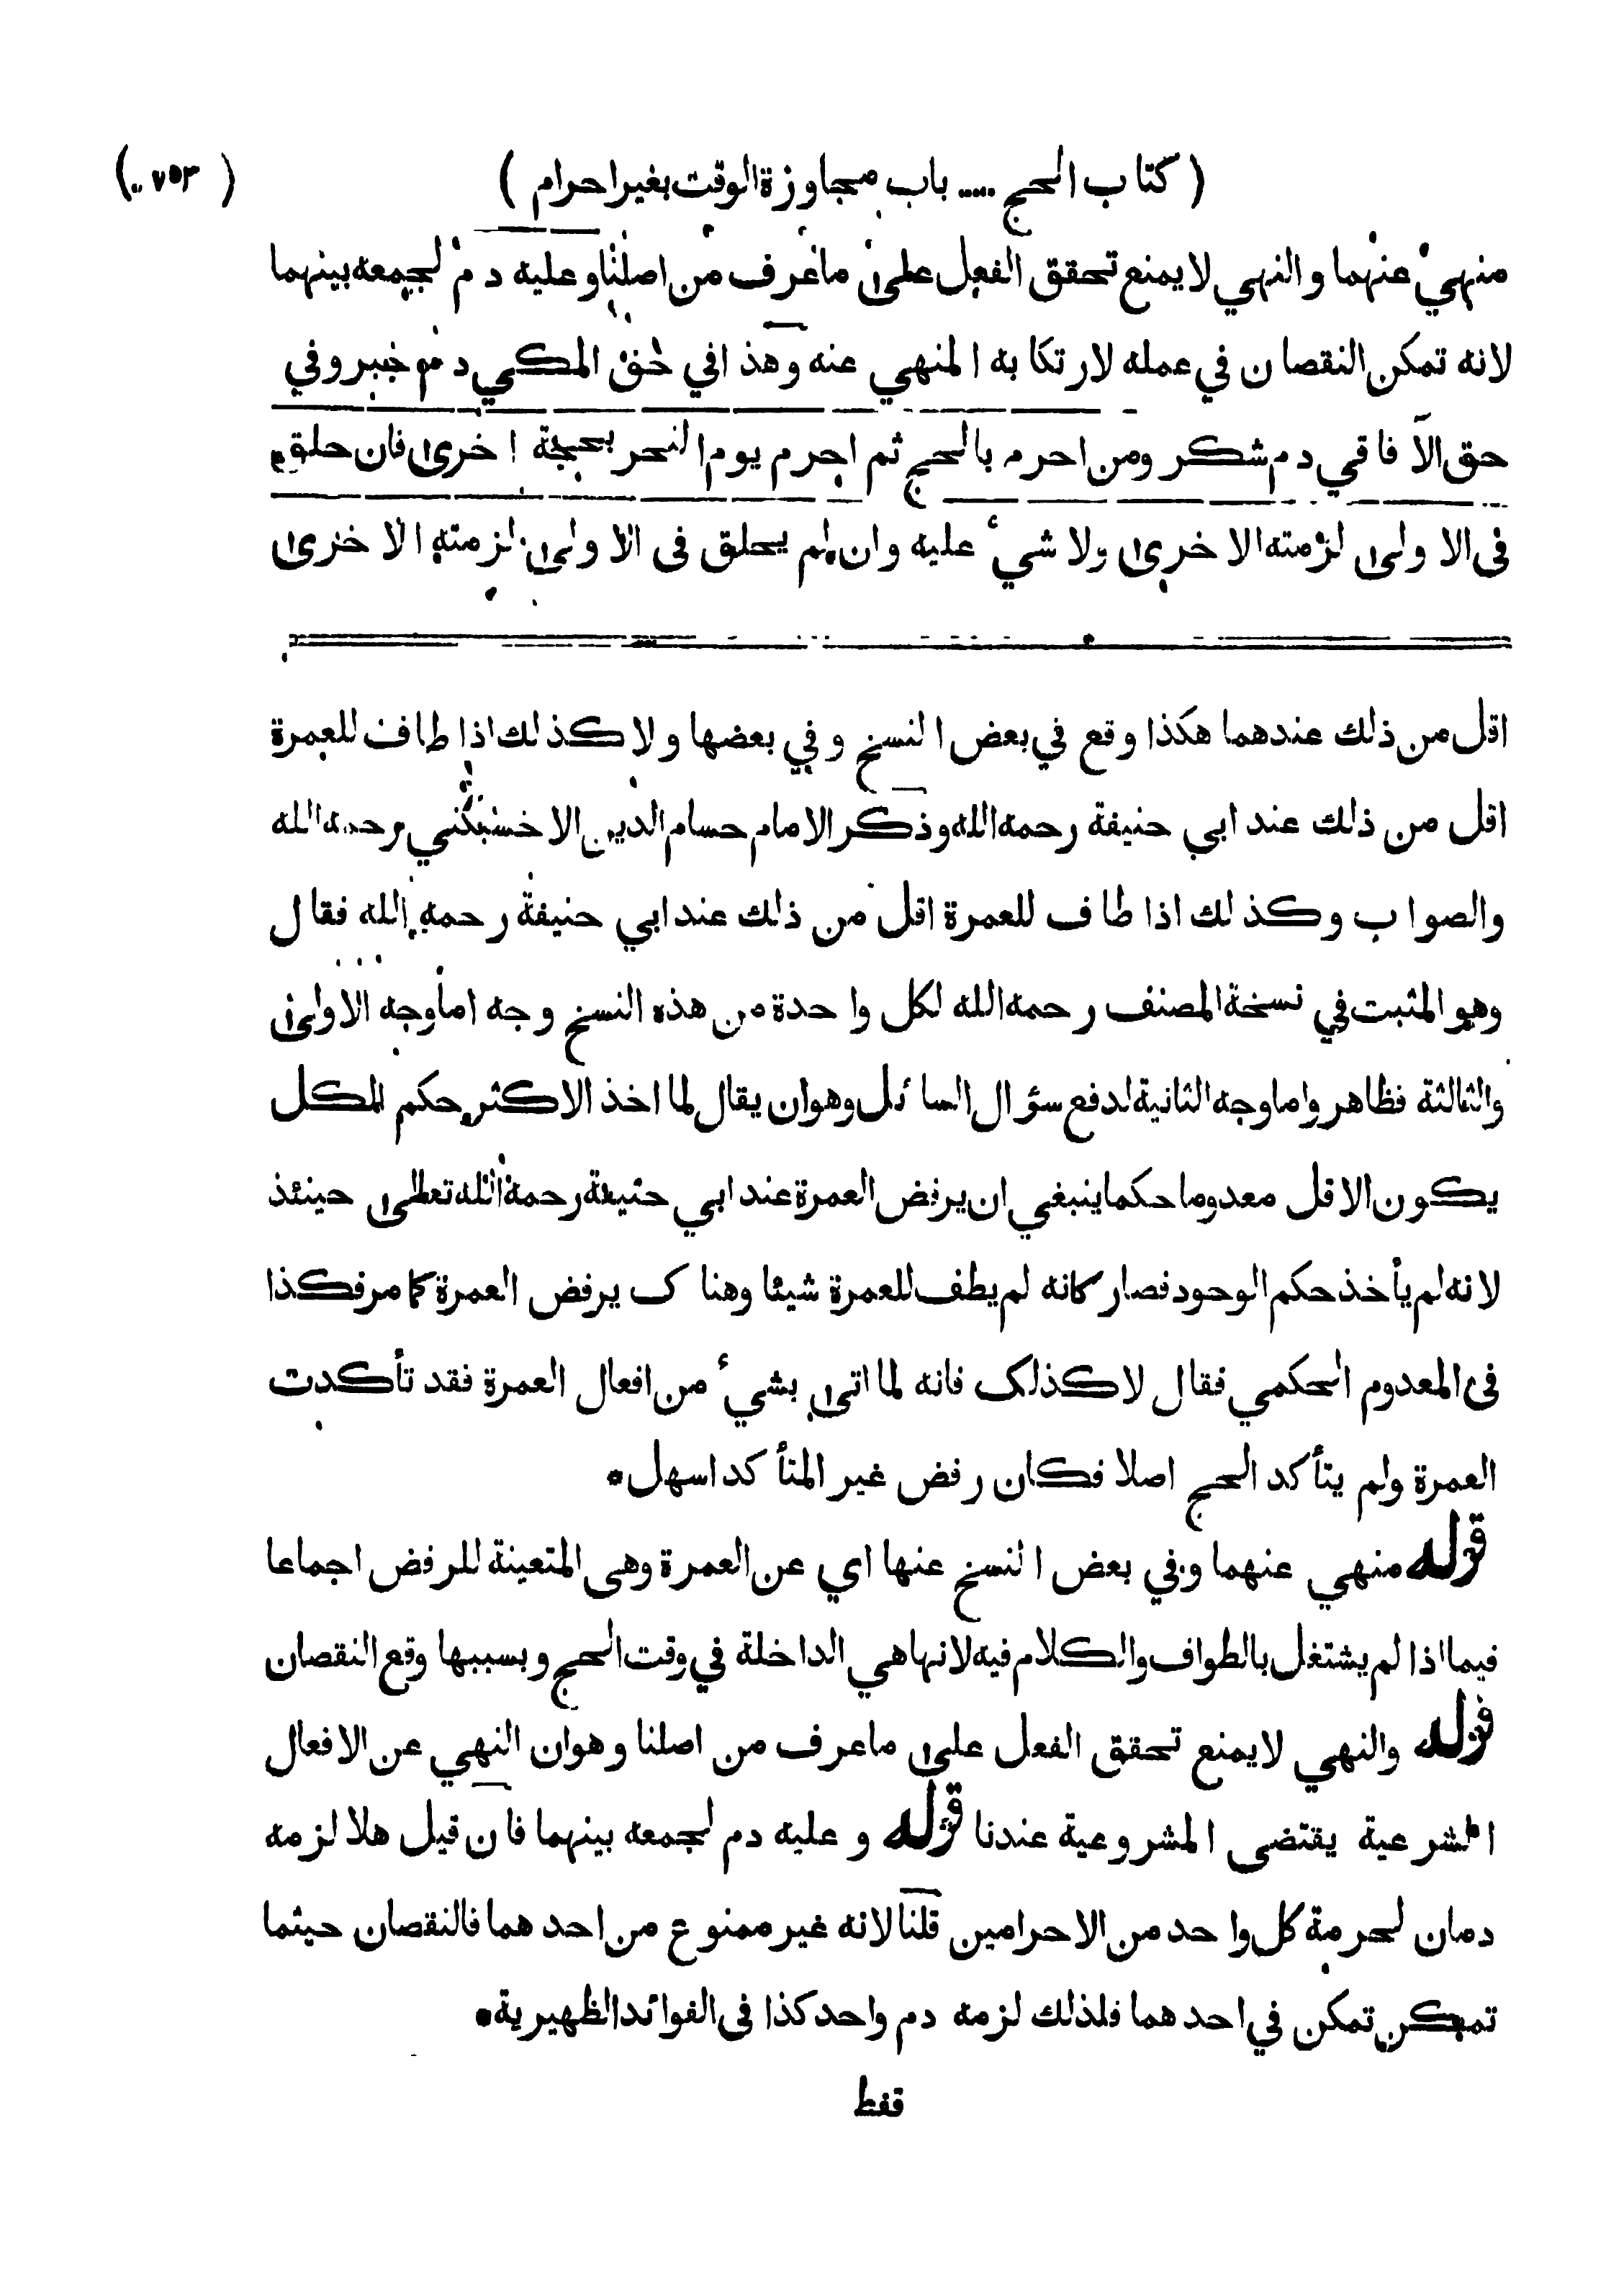 ( كتاب الحج ..... باب مجاوزة الوقت بغير احرام ) ( ٧٥٣ )
منهي عنهما والنهي لا يمنع تحقق الفعل على ما عرف من اصلنا وعليه دم لجمعه بينهما
لانه تمكن النقصان في عمله لارتكابه المنهي عنه وهذا في حق المكي دم جبر وفي
حق الآفاقي دم شكر ومن احرم بالحج ثم احرم يوم النحر بحجة اخرى فان حلق
فى الاولى لزمته الاخرى ولا شيء عليه وان لم يحلق فى الاولى لزمته الاخرى
اقل من ذلك عندهما هكذا وقع في بعض النسخ وفي بعضها ولا كذلك اذا طاف للعمرة
اقل من ذلك عند ابي حنيفة رحمه الله وذكر الامام حسام الدين الاخسيكثي رحمه الله
والصواب وكذلك اذا طاف للعمرة اقل من ذلك عند ابي حنيفة رحمه الله فقال
وهو المثبت في نسخة المصنف رحمه الله لكل واحدة من هذه النسخ وجه اما وجه الاولى
والثالثة فظاهر واما وجه الثانية لدفع سؤال السائل وهو ان يقال لما اخذ الاكثر حكم الكل
يكون الاقل معدوما حكما ينبغي ان يرفض العمرة عند ابي حنيفة رحمة الله تعالى حينئذ
لانه لم يأخذ حكم الوجود فصار كانه لم يطف للعمرة شيئا وهناك يرفض العمرة كما مر فكذا
فى المعدوم الحكمي فقال لا كذلك فانه لما اتى بشيء من افعال العمرة فقد تأكدت
العمرة ولم يتأكد الحج اصلا فكان رفض غير المتأكد اسهل*
قوله منهي عنهما وفي بعض النسخ عنها اي عن العمرة وهى المتعينة للرفض اجماعا
فيما اذا لم يشتغل بالطواف والكلام فيه لانها هي الداخلة في وقت الحج وبسببها وقع النقصان
قوله والنهي لا يمنع تحقق الفعل على ما عرف من اصلنا وهو ان النهي عن الافعال
الشرعية يقتضى المشروعية عندنا قوله وعليه دم لجمعه بينهما فان قيل هلا لزمه
دمان لحرمة كل واحد من الاحرامين قلنا لانه غير ممنوع من احدهما فالنقصان حيثما
تمكن تمكن في احدهما فلذلك لزمه دم واحد كذا فى الفوائد الظهيرية*
فقط